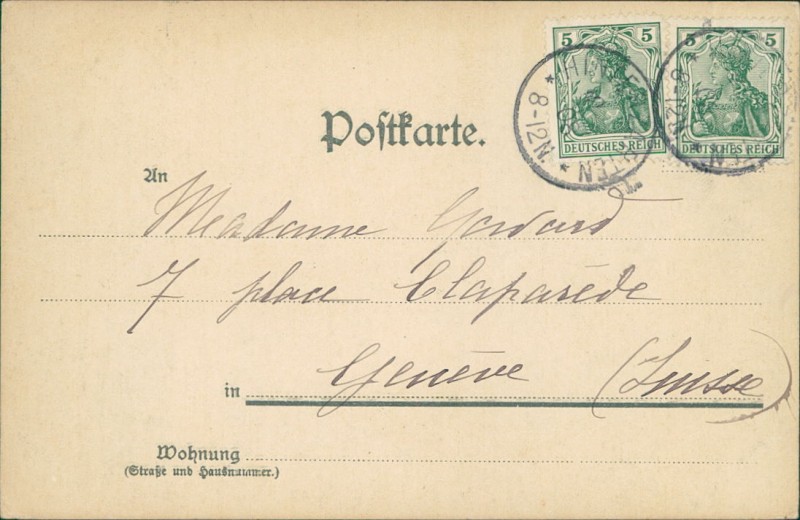 5 5 5 5
DEUTSCHES REICH DEUTSCHES REICH
8-12N.
Postkarte.
An
Madame
7 place Claparède
in Genève (Suisse)
Wohnung
(Straße und Hausnummer.)